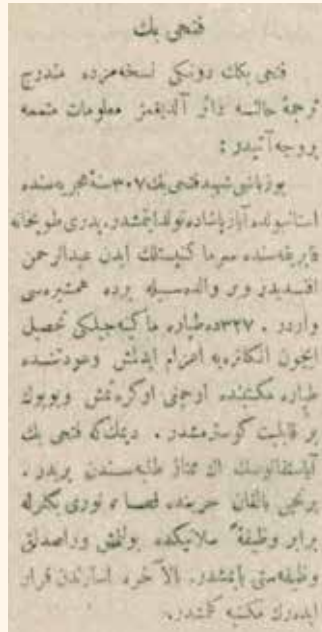 فتحی بك
فتحی بكك دونكی نسخه‌مزده مندرج
ترجمهٔ حالنه دائر آلدیغمز معلومات متممه
بروجه آتیدر :
یوزباشی شهید فتحی بك ۳۰۷ سنهٔ هجریه‌سنده
استانبولده آیازپاشاده تولد ایتمشدر. پدری طوپخانه
فابریقه‌سنده سرماكنیستلك ایدن عبدالرحمن
افندیدر. بر والده‌سیله برده همشیره‌سی
واردر . ۳۲۷ ده طیاره ماكینه‌جیلكی تحصیل
ایچون انكلتره‌یه اعزام ایدلمش وعودتنده
طیاره مكتبنده اوچمنی اوكرنمش وبویوك
بر قابلیت كوسترمشدر . دیمك كه فتحی بك
آیاستفانوسك اك ممتاز طلبه‌سندن بریدر .
برنجی بالقان حربنده نوری بكله
برابر وظیفةً سلانیكده بولنمش وراصدلق
وظیفه‌سنی یاپمشدر. الآخره اسارتدن فرار
ایده‌رك مكتبه كلمشدر.